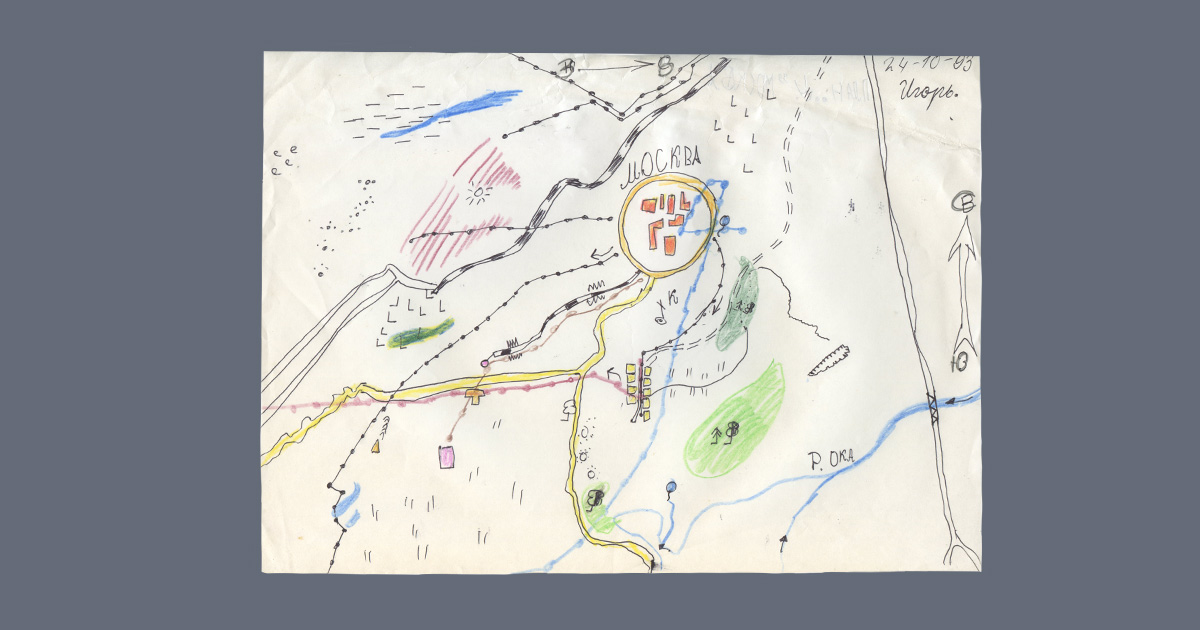 24-10-93
Игорь.
МОСКВА
К
Ю
Р. ОКА